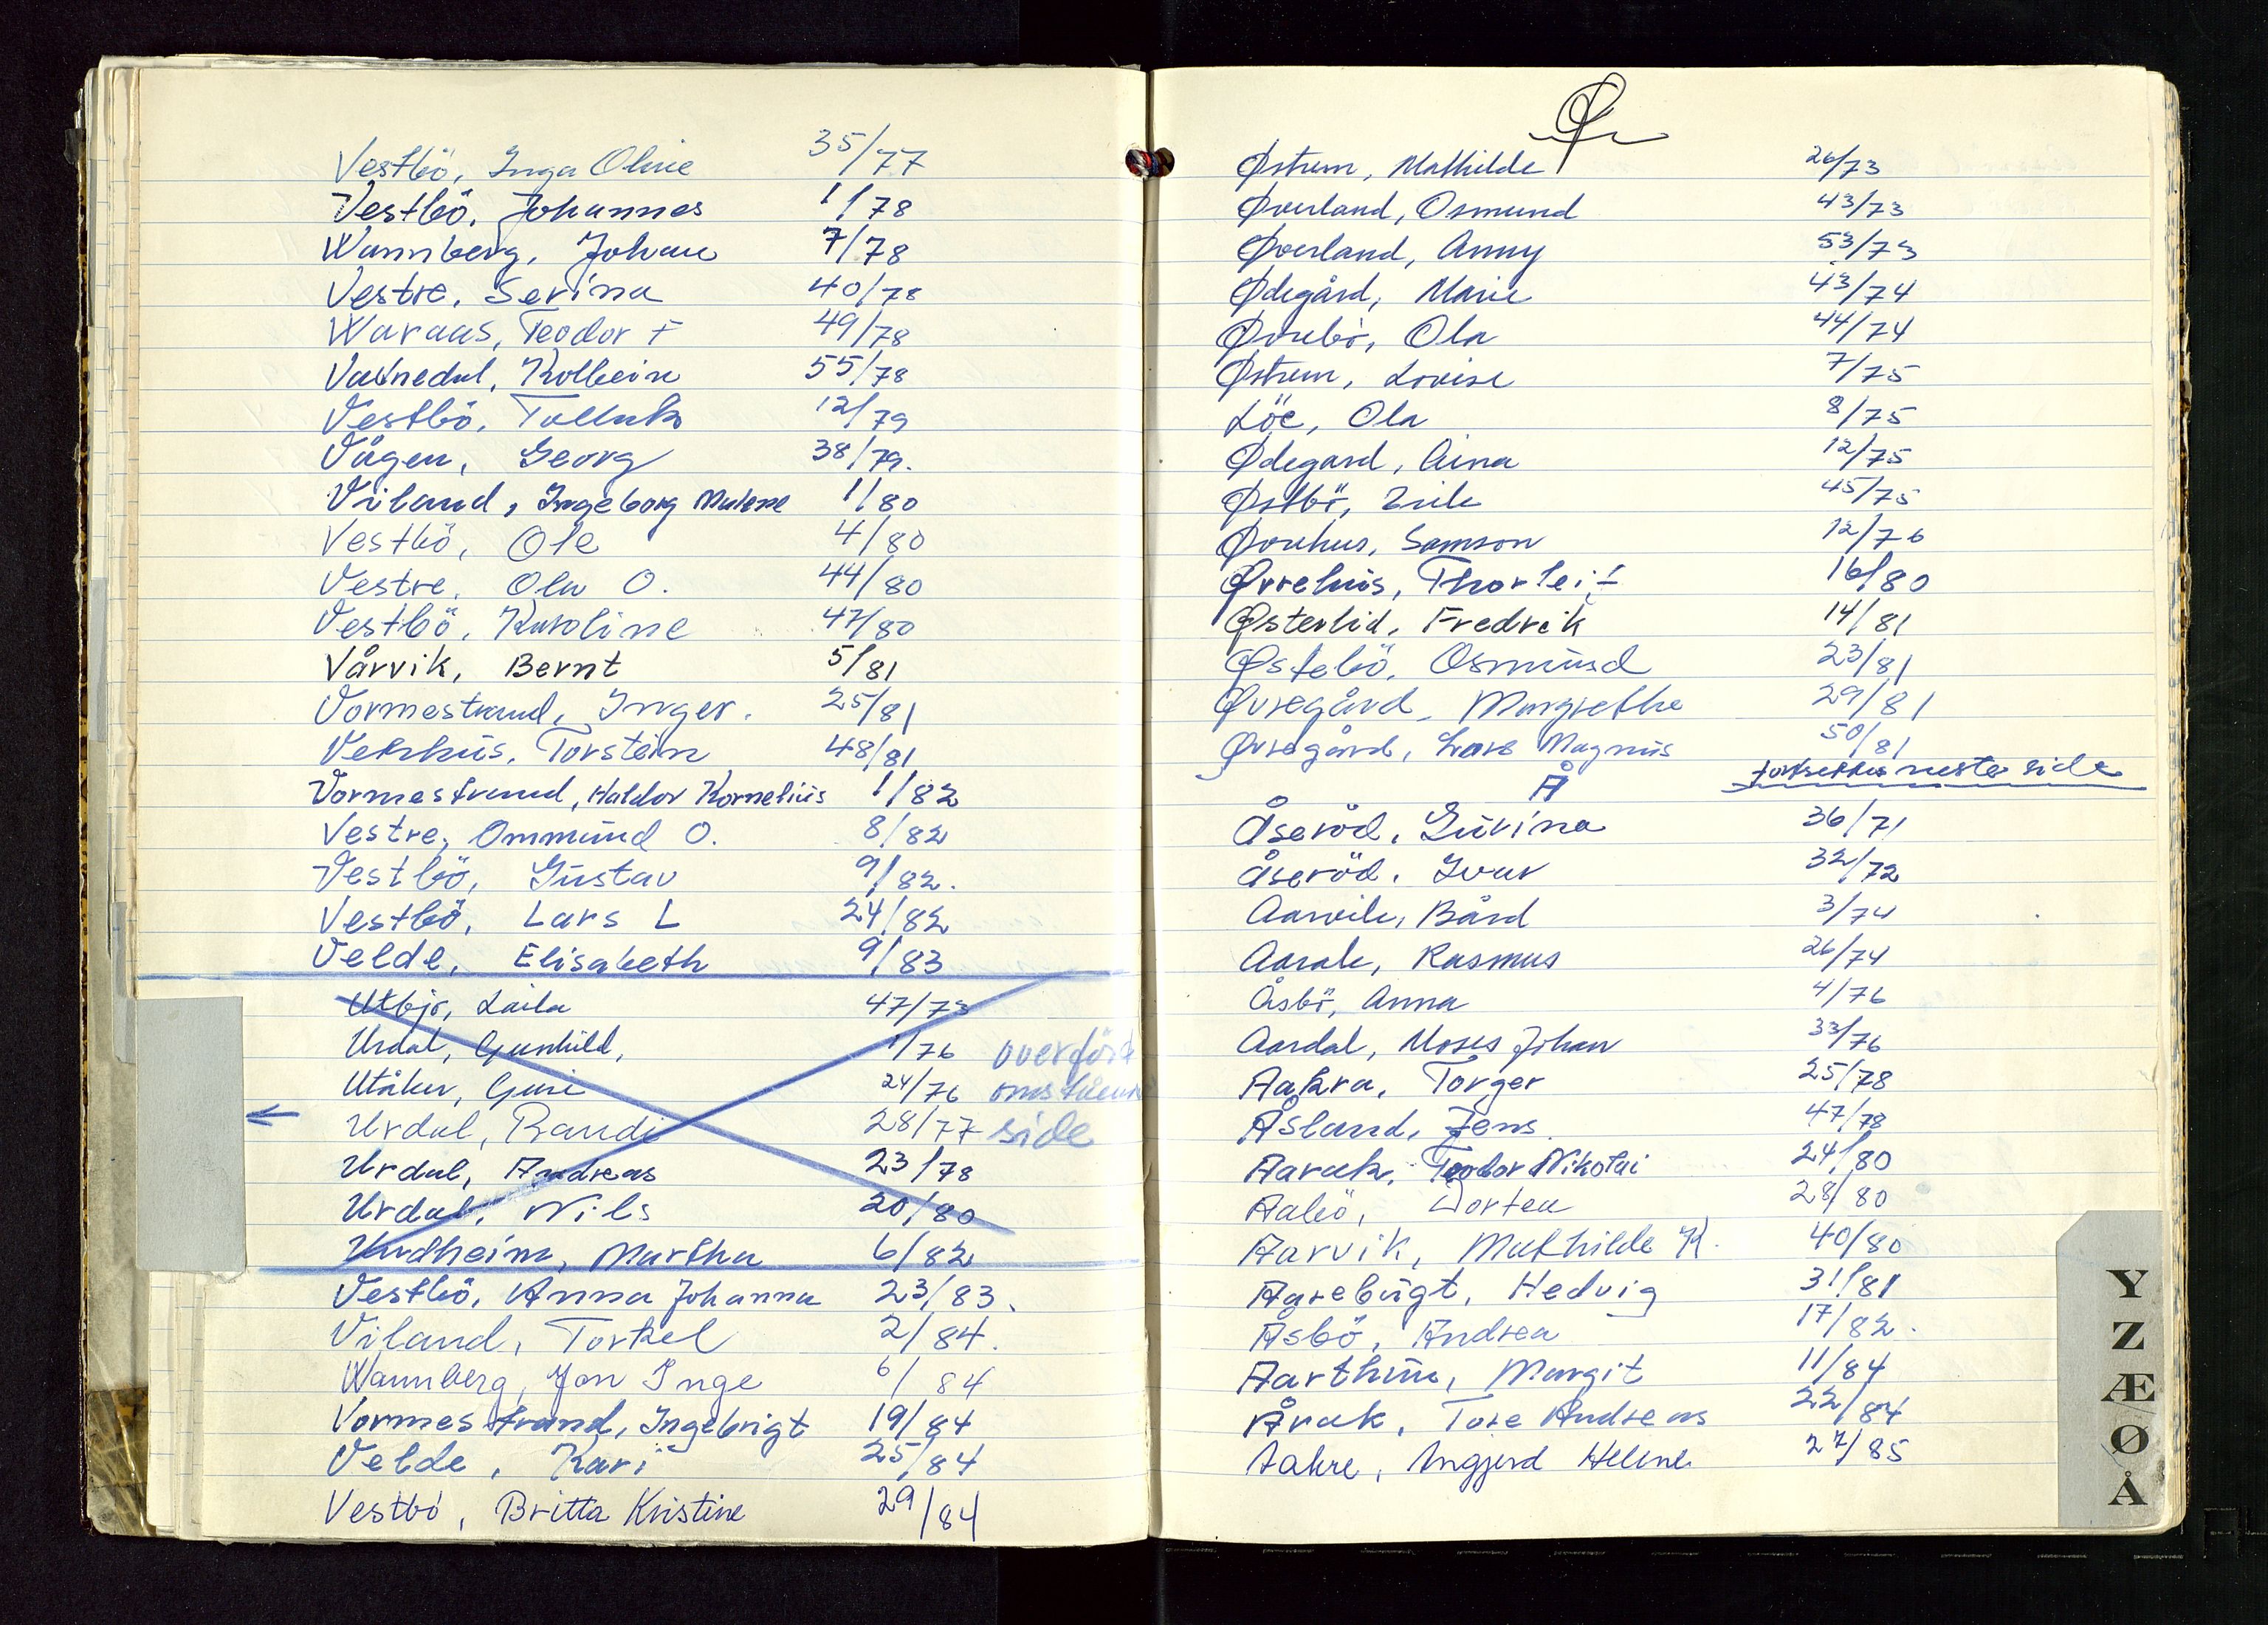 Vestbö, Inga Oline 35/77
Vestbö, Johannes 1/78
Wannberg, Johan 7/78
Vestre, Serina 40/78
Waraas, Teodor F 49/78
Vavnedal, Kolbein 55/78
Vestbö, Tollak 12/79
Vågen, Georg 38/79.
Viland, Ingeborg Malene 1/80
Vestbö, Ole 4/80
Vestre, Ola O. 44/80
Vestbö, Karoline 47/80
Vårvik, Bernt 5/81
Vormestrand, Inger. 25/81
Torstein 48/81
Vormestrand, Haldor Kornelius 1/82
Vestre, Ommund O. 8/82
Vestbö, Gustav 9/82.
Vestbö, Lars L 24/82
Velde, Elisabeth 9/83
Utbjo, Laila 47/73
Urdal, Gunhild, 1/76 overfört
Utåker, Guri 24/76
Urdal, Randi 28/77 side
Urdal, Andreas 23/78
Urdal, Nils 20/80
Undheim, Martha 6/82
Vestbö, Anna Johanna 23/83.
Viland, Torkel 2/84.
Wannberg, Jon Inge 6/84
Vormestrand, Ingebrigt 19/84
Velde, Kari 25/84
Vestbö, Britta Kristine 29/84
Ø
Østrem, Mathilde 26/73
Øverland, Osmund 43/73
Øverland, Anny 53/73
Ødegård, Marie 43/74
Øvrebö, Ola 44/74
Østrem, Lovise 7/75
Löe, Ola 8/75
Ødegard, Aina 12/75
Østbö, Eril 45/75
Øvrehus, Samson 12/76
Øvrehus, Thorleif 16/80
Østerlid, Fredrik 14/81
Østebö, Osmund 23/81
Øvregård, Margrethe 29/81
Øvregård, Lars Magnus 50/81
Å fortsettes neste side
Åseröd, Gurina 36/71
Åseröd, Ivar 32/72
Aarvik, Bård 3/74
Aarak, Rasmus 26/74
Åsbö, Anna 4/76
Aardal, Moses Johan 33/76
Aakra, Torger 25/78
Åsland, Jens. 47/78
Aarak, Teodor Nikolai 24/80
Aabö, Dortea 28/80
Aarvik, Mathilde K. 40/80
Aarebugt, Hedvig 31/81
Åsbö, Andrea 17/82.
Aarthun, Margit 11/84
Årak, Tore Andreas 22/84
Aakre, Ingjerd Helene 27/85
Y
Z
Æ
Ø
Å